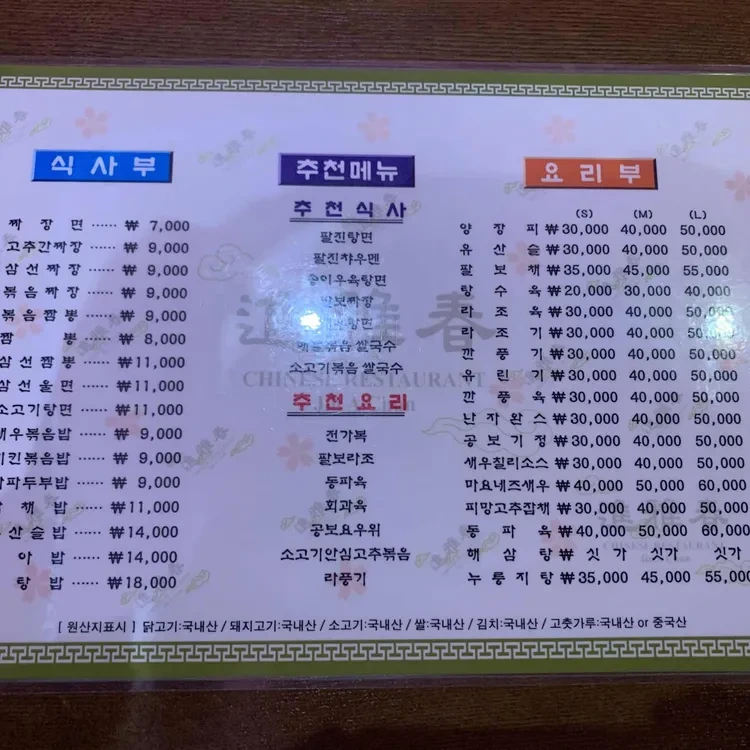 식사부
짜장면 ······ ₩ 7,000
고추간짜장 ······ ₩ 9,000
삼선짜장 ······ ₩ 9,000
볶음짜장 ······ ₩ 9,000
볶음짬뽕 ······ ₩ 9,000
짬뽕 ······ ₩ 8,000
삼선짬뽕 ······ ₩11,000
삼선울면 ······ ₩11,000
소고기탕면 ······ ₩11,000
새우볶음밥 ······ ₩ 9,000
치킨볶음밥 ······ ₩ 9,000
마파두부밥 ······ ₩ 9,000
잡채밥 ······ ₩11,000
유산슬밥 ······ ₩14,000
아밥 ······ ₩14,000
탕밥 ······ ₩18,000
추천메뉴
추천식사
팔진탕면
팔진챠우멘
송이우육탕면
짜장
탕면
볶음 쌀국수
소고기볶음 쌀국수
추천요리
전가복
팔보라조
동파육
회과육
공보요우위
소고기안심고추볶음
라풍기
요리부
(S) (M) (L)
양장피 ₩30,000 40,000 50,000
유산슬 ₩30,000 40,000 50,000
팔보채 ₩35,000 45,000 55,000
탕수육 ₩20,000 30,000 40,000
라조육 ₩30,000 40,000 50,000
라조기 ₩30,000 40,000 50,000
깐풍기 ₩30,000 40,000 50,000
유린기 ₩30,000 40,000 50,000
깐풍육 ₩30,000 40,000 50,000
난자완스 ₩30,000 40,000 50,000
공보기정 ₩30,000 40,000 50,000
새우칠리소스 ₩30,000 40,000 50,000
마요네즈새우 ₩40,000 50,000 60,000
피망고추잡채 ₩30,000 40,000 50,000
동파육 ₩40,000 50,000 60,000
해삼탕 ₩ 싯가 싯가 싯가
누룽지탕 ₩35,000 45,000 55,000
進雅春
CHINESE RESTAURANT
[ 원산지표시 ] 닭고기:국내산 / 돼지고기:국내산 / 소고기:국내산 / 쌀:국내산 / 김치:국내산 / 고춧가루:국내산 or 중국산